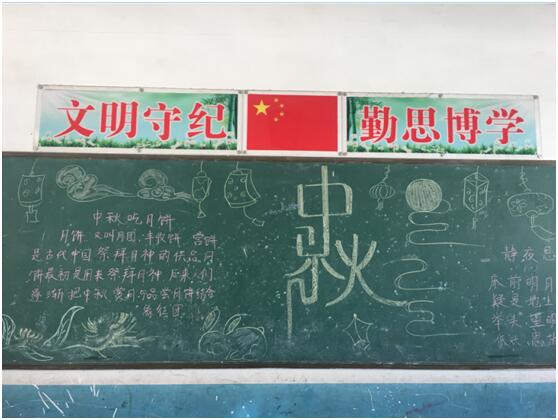 文明守纪
勤思博学
中秋吃月饼
月饼 又叫月团、丰收饼、宫饼
是古代中国祭拜月神的供品,月
饼最初是用来祭拜月神 后来人们
逐渐把中秋赏月与品尝月饼结合
团
中秋
静夜思
床前明月
疑是地上
举头望明
低头思